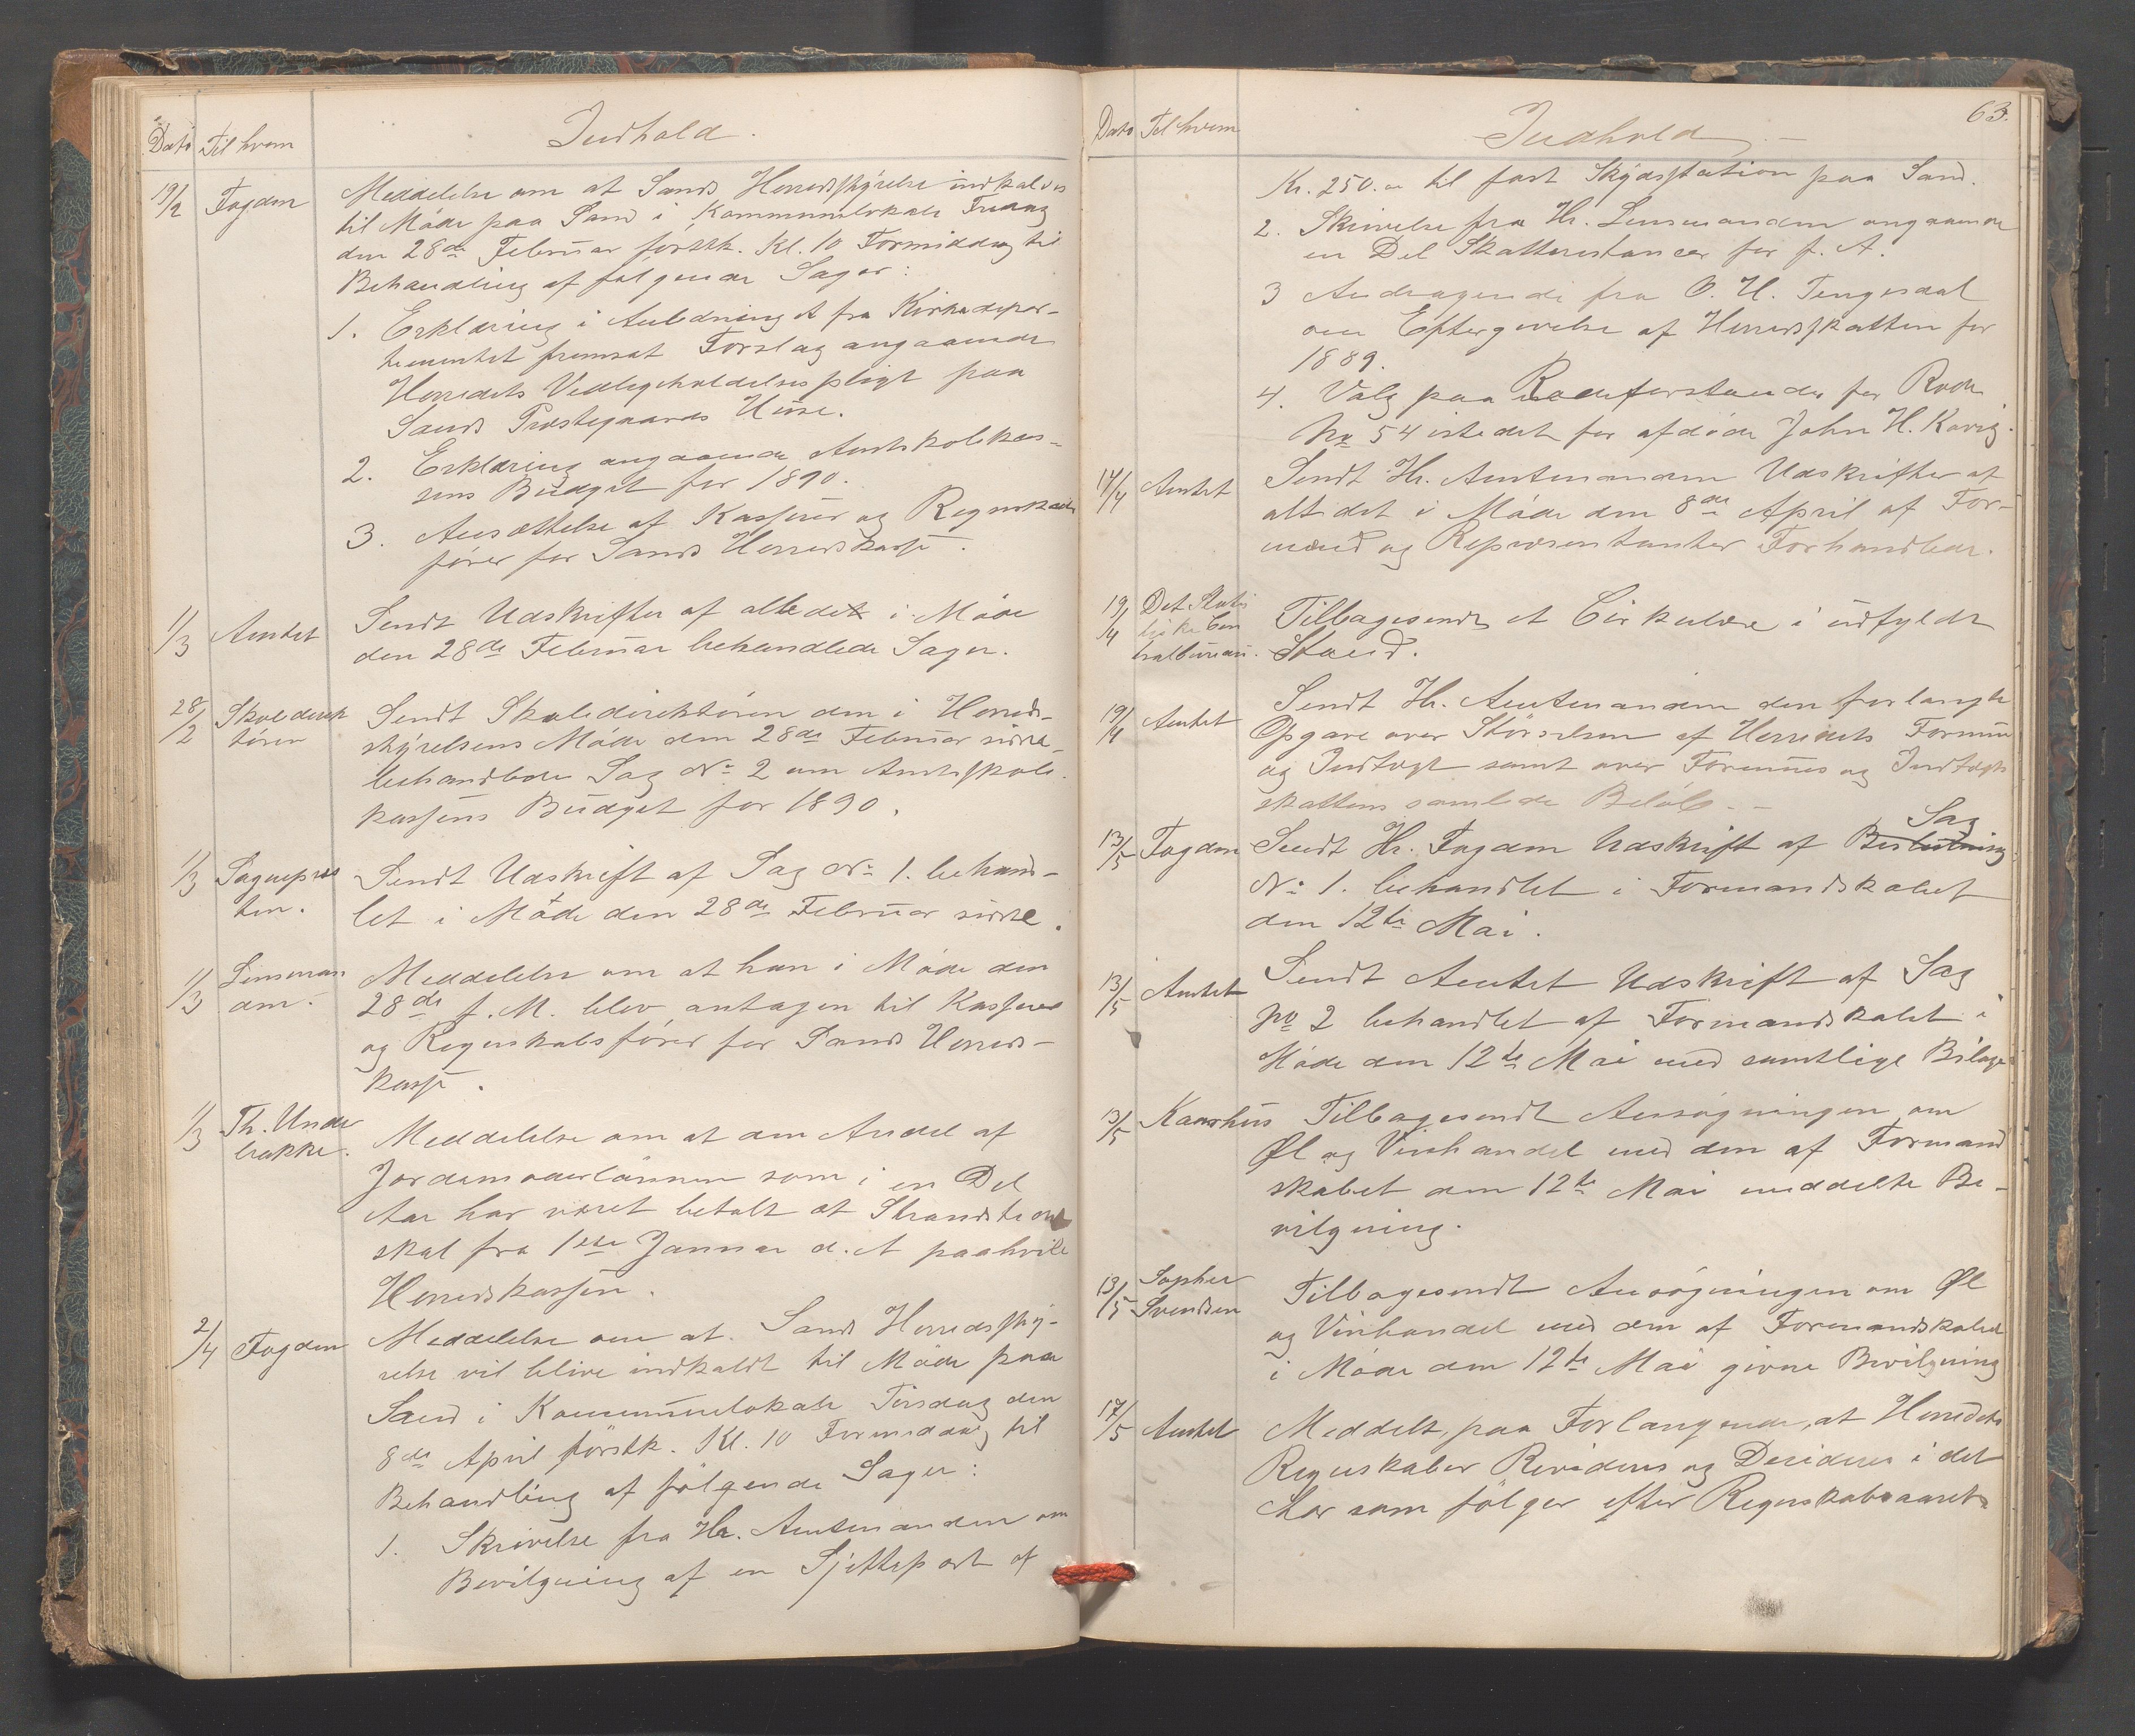 Dato Til hvem Indhold.
19/2 Fogden Meddelelse om at Sands Herredsstyrelse indkaldes
til Møde paa Sand i Kommunelokale Fredag
den 28de Februar förstk. Kl. 10 Formiddag til
Behandling af følgende Sager:
1. Erklæring i Anledning et fra Kirkedepar-
tementet fremsat Forslag angaaende
Herredets Vedligeholdelsespligt paa
Sands Præstegaards Huse.
2. Erklæring angaaende Amtskolekas-
sens Budget for 1890.
3. Ansættelse af Kasserer og Regnskabs
fører for Sands Herredskasse.
1/3 Amtet Sendt Udskrifter af alle det i Møde
den 28de Februar behandlede Sager.
28/2 Skoledirek
tören Sendt Skoledirektören den i Herreds-
styrelsens Møde den 28de Februar sidstl.
behandlede Sag No 2 om Amtsskole
kassens Budget for 1890.
1/3 Sognepræs
ten. Sendt Udskrift af Sag No 1. behand-
let i Møde den 28de Februar sidstl.
1/3 Lensman
den. Meddelelse om at han i Møde den
28de f. M. blev antagen til Kasserer
og Regnskabsfører for Sands Herreds-
kasse.
1/3 Th. Under
bakke. Meddelelse om at den Andel af
Jordemoderlönnen som i en Del
Aar har været betalt at
skal fra 1ste Januar d. A paahvile
Herredskassen.
2/4 Fogden Meddelelse om at Sands Herredssty-
relse vil blive indkaldt til Møde paa
Sand i Kommunelokale Tirsdag den
8de April förstk. Kl. 10 Formiddag til
Behandling af følgende Sager:
1. Skrivelse fra Hr. Amtmanden om
Bevilgning af en Sjettepart af
63.
Dato Til hvem Indhold
Kr. 250.00 til fast Skydsstation paa Sand.
2. Skrivelse fra Hr. Lensmanden angaaende
en Del Skatterestancer for f. A.
3 Andragende fra O. H. Tengesdal
om Eftergivelse af Herredsskatten for
1889.
4. Valg paa Rodeforstander for Rode
No 54 istedet for afdøde John H.
17/4 Amtet Sendt Hr. Amtmanden Udskrifter af
alt det i Møde den 8de April af For-
mænd og Repræsentanter Forhandlede.
19/4 Det Statis
tiske Cen
tralbureau. Tilbagesendt et Cirkulære i udfyldt
Stand.
19/4 Amtet Sendt Hr. Amtmanden den forlangte
Opgave over Störrelsen af Herredets Formue
og Indtægt samt over Formues og Indtægts
skattens samlede Beløb. -
13/5 Fogden Sendt Hr. Fogden Udskrift af Beslutning Sag
No 1. behandlet i Formandskabet
den 12te Mai.
13/5 Amtet Sendt Amtet Udskrift af Sag
No 2 behandlet af Formandskabet i
Møde den 12te Mai med samtlige Bilage
13/5 Kaarhus Tilbagesendt Ansøgningen om
Øl og Vinhandel med den af Formand
skabet den 12te Mai meddelte Be-
vilgning.
13/5 Sopher
Svendsen Tilbagesendt Ansøgningen om Øl
og Vinhandel med den af Formandskabet
i Møde den 12te Mai givne Bevilgning
17/5 Amtet Meddelt, paa Forlangende, at Herredets
Regnskaber Revideres og Decideres i det
Aar som følger efter Regnskabsaaret.